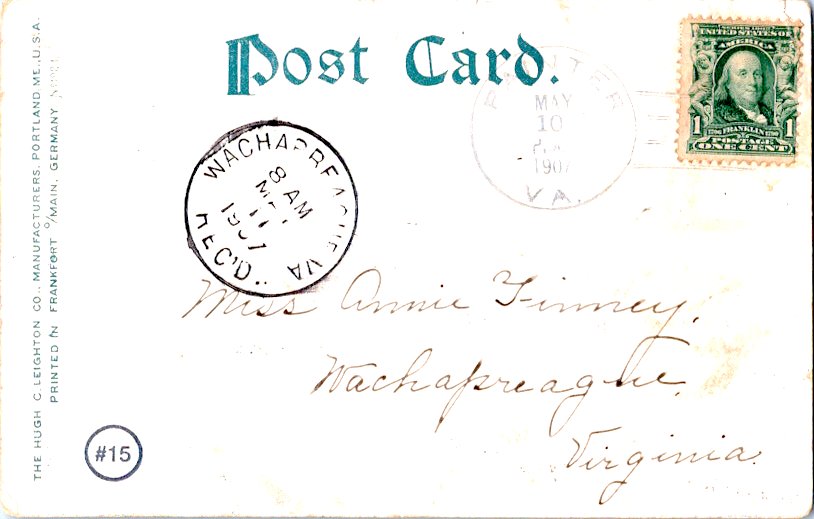 Post Card.
SERIES 1902
UNITED STATES OF
AMERICA
1 1
1706 FRANKLIN 1790
POSTAGE
ONE CENT
PAINTER
MAY
10
1907
VA.
WACHAPREAGUE VA
8 AM
11
1907
REC'D.
Miss Annie Finney,
Wachapreague,
Virginia.
THE HUGH C. LEIGHTON CO., MANUFACTURERS, PORTLAND, ME., U.S.A.
PRINTED IN FRANKFORT O/MAIN, GERMANY
#15